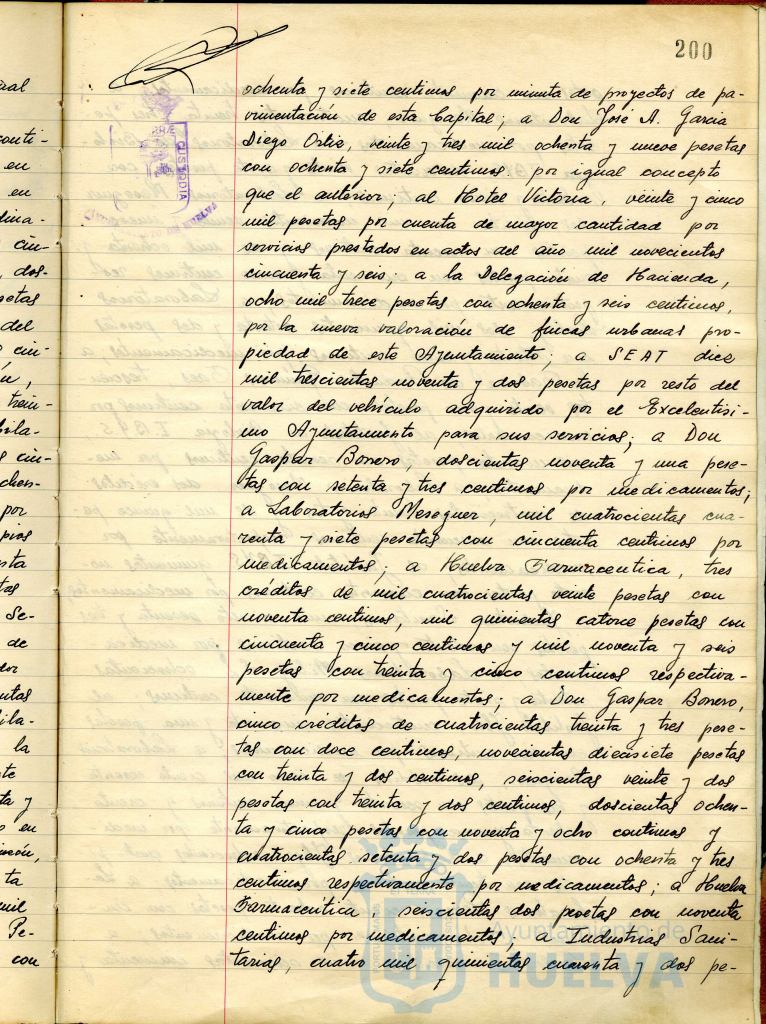 200
ochenta y siete centimos por minuta de proyectos de pa-
vimentación de esta Capital; a Don José A. Garcia
Diego Ortiz, veinte y tres mil ochenta y nueve pesetas
con ochenta y siete centimos por igual concepto
que el anterior; al Hotel Victoria, veinte y cinco
mil pesetas por cuenta de mayor cantidad por
servicios prestados en actos del año mil novecientos
cincuenta y seis; a la Delegación de Hacienda,
ocho mil trece pesetas con ochenta y seis centimos,
por la nueva valoración de fincas urbanas pro-
piedad de este Ayuntamiento; a SEAT diez
mil trescientas noventa y dos pesetas por resto del
valor del vehículo adquirido por el Excelentisi-
mo Ayuntamiento para sus servicios; a Don
Gaspar Bonero, doscientas noventa y una pese-
tas con setenta y tres centimos por medicamentos;
a Laboratorios Meseguer, mil cuatrocientas cua-
renta y siete pesetas con cincuenta centimos por
medicamentos; a Huelva Farmaceutica, tres
créditos de mil cuatrocientas veinte pesetas con
noventa centimos, mil quinientas catorce pesetas con
cincuenta y cinco centimos y mil noventa y seis
pesetas con treinta y cinco centimos respectiva-
mente por medicamentos; a Don Gaspar Bonero,
cinco créditos de cuatrocientas treinta y tres pese-
tas con doce centimos, novecientas diecisiete pesetas
con treinta y dos centimos, seiscientas veinte y dos
pesetas con treinta y dos centimos, doscientas ochen-
ta y cinco pesetas con noventa y ocho centimos y
cuatrocientas setenta y dos pesetas con ochenta y tres
centimos respectivamente por medicamentos; a Huelva
Farmaceutica, seiscientas dos pesetas con noventa
centimos por medicamentos; a Industrias Sani-
tarias, cuatro mil quinientas cuarenta y dos pe-
CUSTODIA
Ayuntamiento de
HUELVA